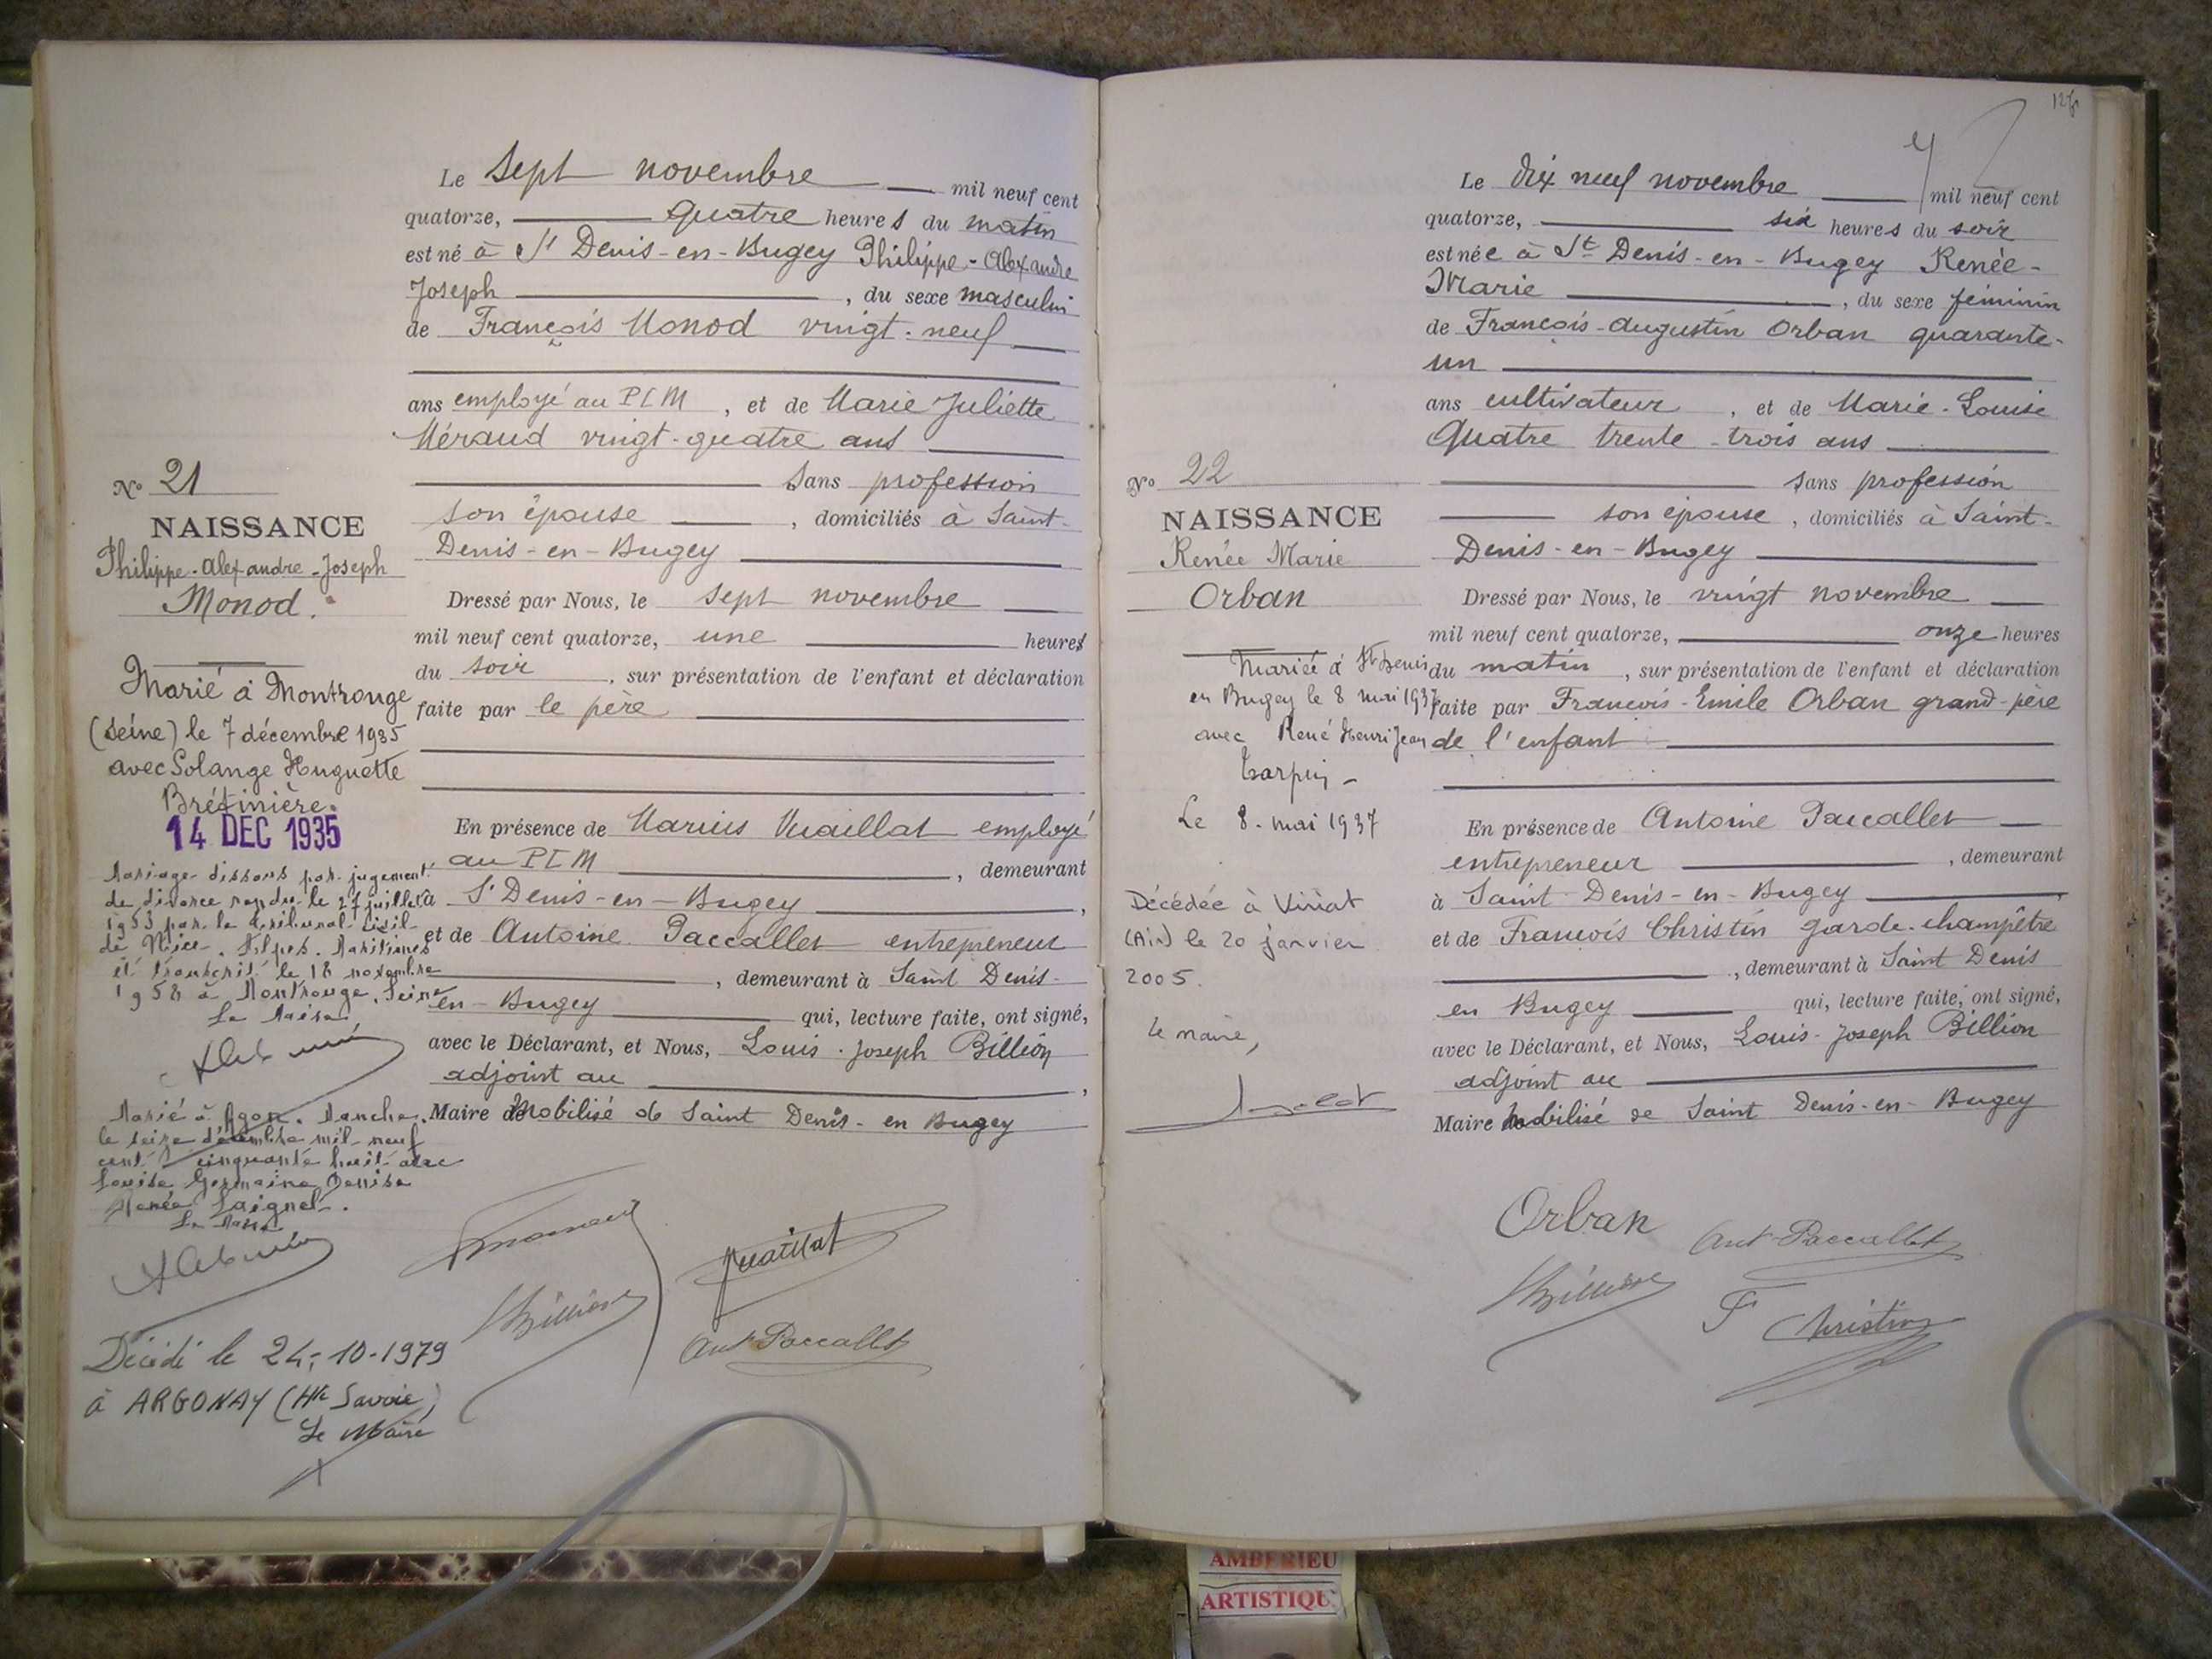 Le Sept novembre mil neuf cent
quatorze, Quatre heures du matin
est né à St Denis-en-Bugey Philippe-Alexandre
Joseph , du sexe masculin
de François Monod vingt-neuf
ans employé au PLM , et de Marie Juliette
Méraud vingt-quatre ans
Sans profession
son épouse , domiciliés à Saint-
Denis-en-Bugey
Dressé par Nous, le sept novembre
mil neuf cent quatorze, une heures
du soir , sur présentation de l'enfant et déclaration
faite par le père
En présence de Marius Vuaillat employé
au PLM , demeurant
à St Denis-en-Bugey ,
et de Antoine Paccallet entrepreneur
, demeurant à Saint Denis-
en-Bugey qui, lecture faite, ont signé,
avec le Déclarant, et Nous, Louis-Joseph Billion
adjoint au ,
Maire mobilisé de Saint Denis-en Bugey
Vuaillat
Ant Paccallet
No 21
NAISSANCE
Philippe-Alexandre-Joseph
Monod.
Marié à Montrouge
(Seine) le 7 décembre 1935
avec Solange Huguette
Brétinière.
14 DEC 1935
Mariage dissous par jugement
de divorce rendu le 27 juillet
1953 par le tribunal civil
de Nice. Alpes. Maritimes
et transcrit le 18 novembre
1958 à Montrouge, Seine
Le Maire
Marié à Agon. Manche.
le seize décembre mil neuf
cent cinquante huit avec
Louise Germaine Denise
Renée Laignel.
Le Maire
Décédé le 24-10-1979
à ARGONAY (Hte Savoie)
Le Maire
126
Le dix neuf novembre mil neuf cent
quatorze, six heures du soir
est née à St Denis-en-Bugey Renée-
Marie , du sexe féminin
de François-Augustin Orban quarante-
un
ans cultivateur , et de Marie-Louise
Quatre trente-trois ans
sans profession
son épouse , domiciliés à Saint-
Denis-en-Bugey
Dressé par Nous, le vingt novembre
mil neuf cent quatorze, onze heures
du matin , sur présentation de l'enfant et déclaration
faite par François-Emile Orban grand-père
de l'enfant
En présence de Antoine Paccallet
entrepreneur , demeurant
à Saint-Denis-en-Bugey ,
et de François Christin garde-champêtre
, demeurant à Saint Denis
en Bugey qui, lecture faite, ont signé,
avec le Déclarant, et Nous, Louis-Joseph Billion
adjoint au
Maire mobilisé de Saint Denis-en-Bugey
Orban
Ant Paccallet
Billion
F Christin
No 22
NAISSANCE
Renée Marie
Orban
Mariée à St Denis
en Bugey le 8 mai 1937
avec René Henri Jean
Tarpin -
Le 8. mai 1937
Décédée à Viriat
(Ain) le 20 janvier
2005.
Le maire,
AMBERIEU
ARTISTIQU